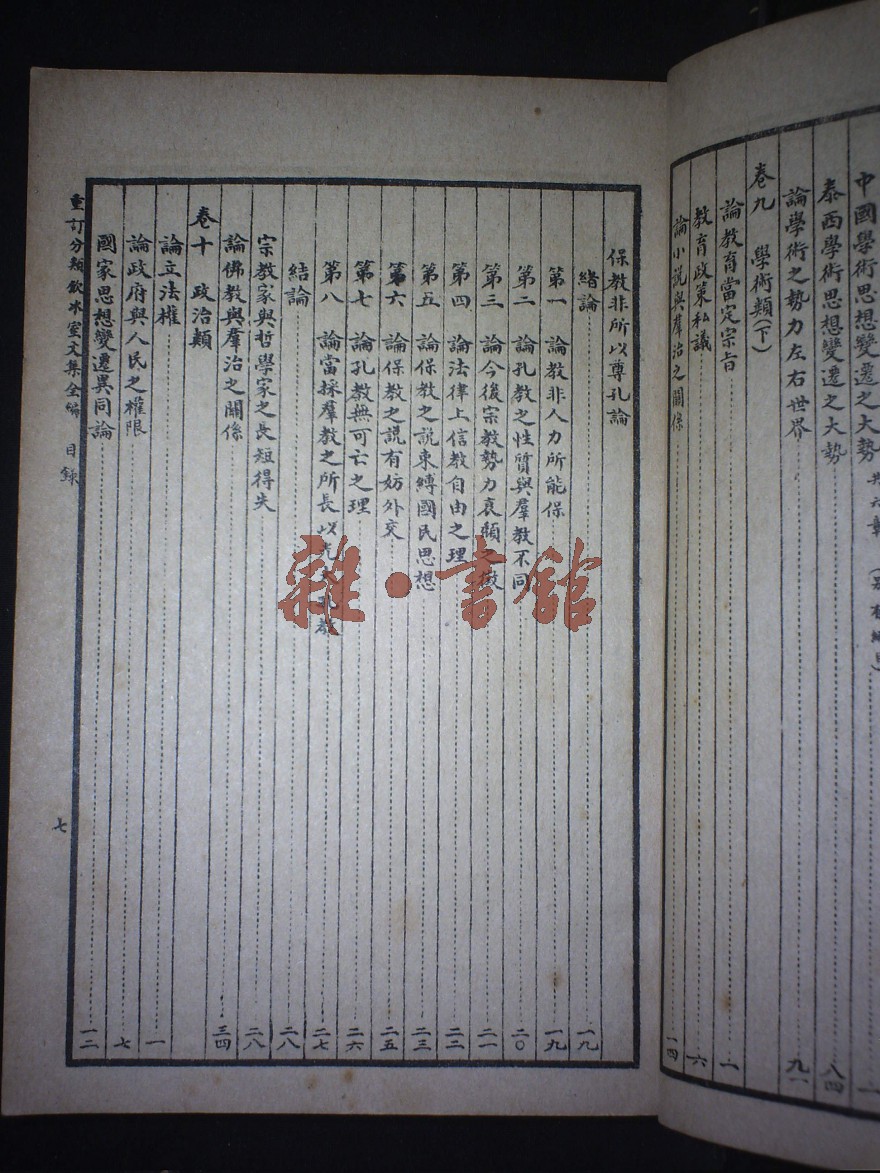 中國學術思想變遷之大勢
泰西學術思想變遷之大勢 八四
論學術之勢力左右世界 九一
卷九 學術類(下)
論教育當定宗旨 一
教育政策私議 六
論小説與羣治之關係 一四
保教非所以尊孔論
緒論 一九
第一 論教非人力所能保 一九
第二 論孔教之性質與羣教不同 二〇
第三 論今後宗教勢力衰頽之徵 二一
第四 論法律上信教自由之理 二二
第五 論保教之説束縛國民思想 二三
第六 論保教之説有妨外交 二五
第七 論孔教無可亡之理 二六
第八 論當採羣教之所長以光大孔教 二七
結論 二八
宗教家與哲學家之長短得失 二八
論佛教與羣治之關係 三四
卷十 政治類
論立法權 一
論政府與人民之權限 七
國家思想變遷異同論 一二
重訂分類飲冰室文集全編 目錄 七
雜·書館